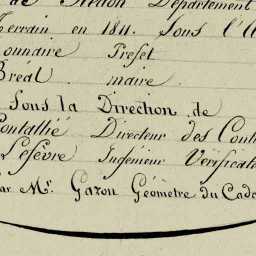 de Melton Département
Terrain en 1811. Sous l'A
ionnaire Prefet
Bréal maire
Sous la Direction de
Pontallié Directeur des Cont
Lefèvre Ingénieur Vérificat
ar Mr. Garon Géomètre du Cada